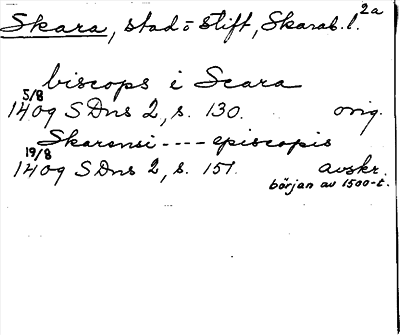 Skara, stad o stift, Skarab. l. 2a
biscops i Scara
5/8
1409 SDns 2, s. 130. orig.
Skarensi ---- episcopis
19/8
1409 SDns 2, s. 151. avskr.
början av 1500-t.